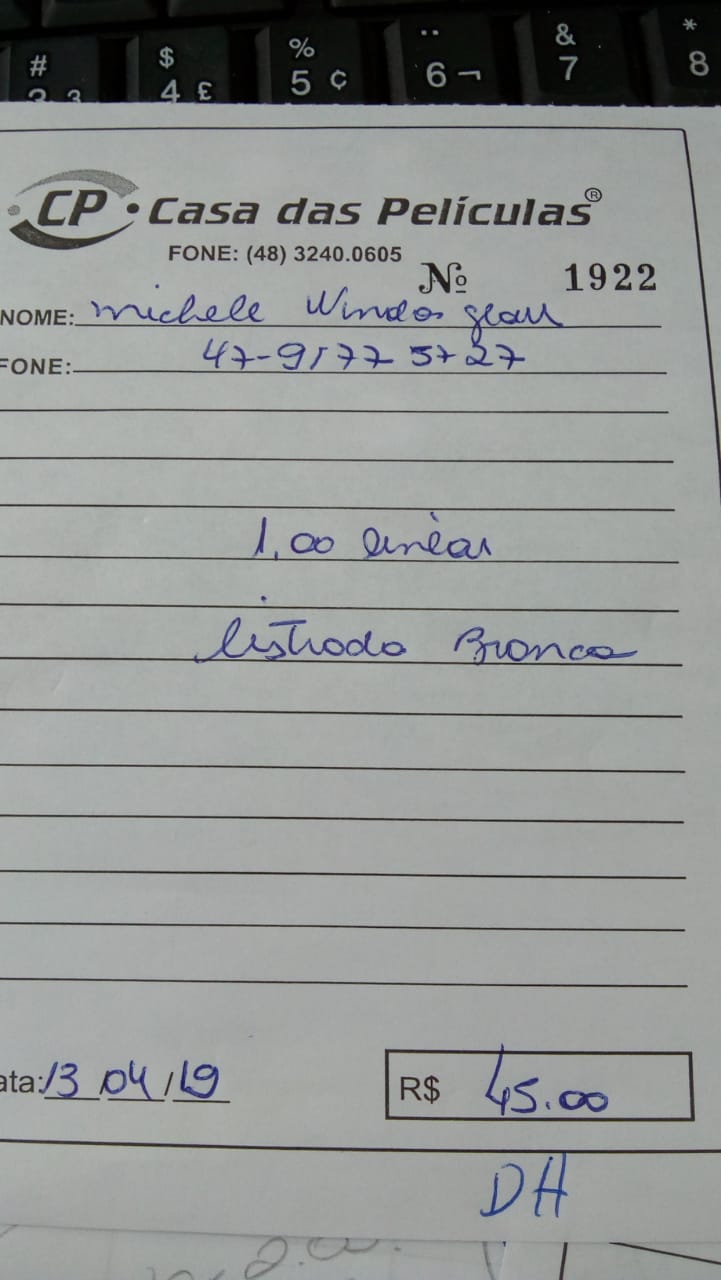 # $ % ¨ & *
3 3 4 £ 5 ¢ 6 ¬ 7 8
CP · Casa das Películas®
FONE: (48) 3240.0605
Nº 1922
NOME: michele Windos glass
FONE: 47-9177 5727
1,00 linear
listrado Branco
ata: 13/04/19
R$ 45.00
DH